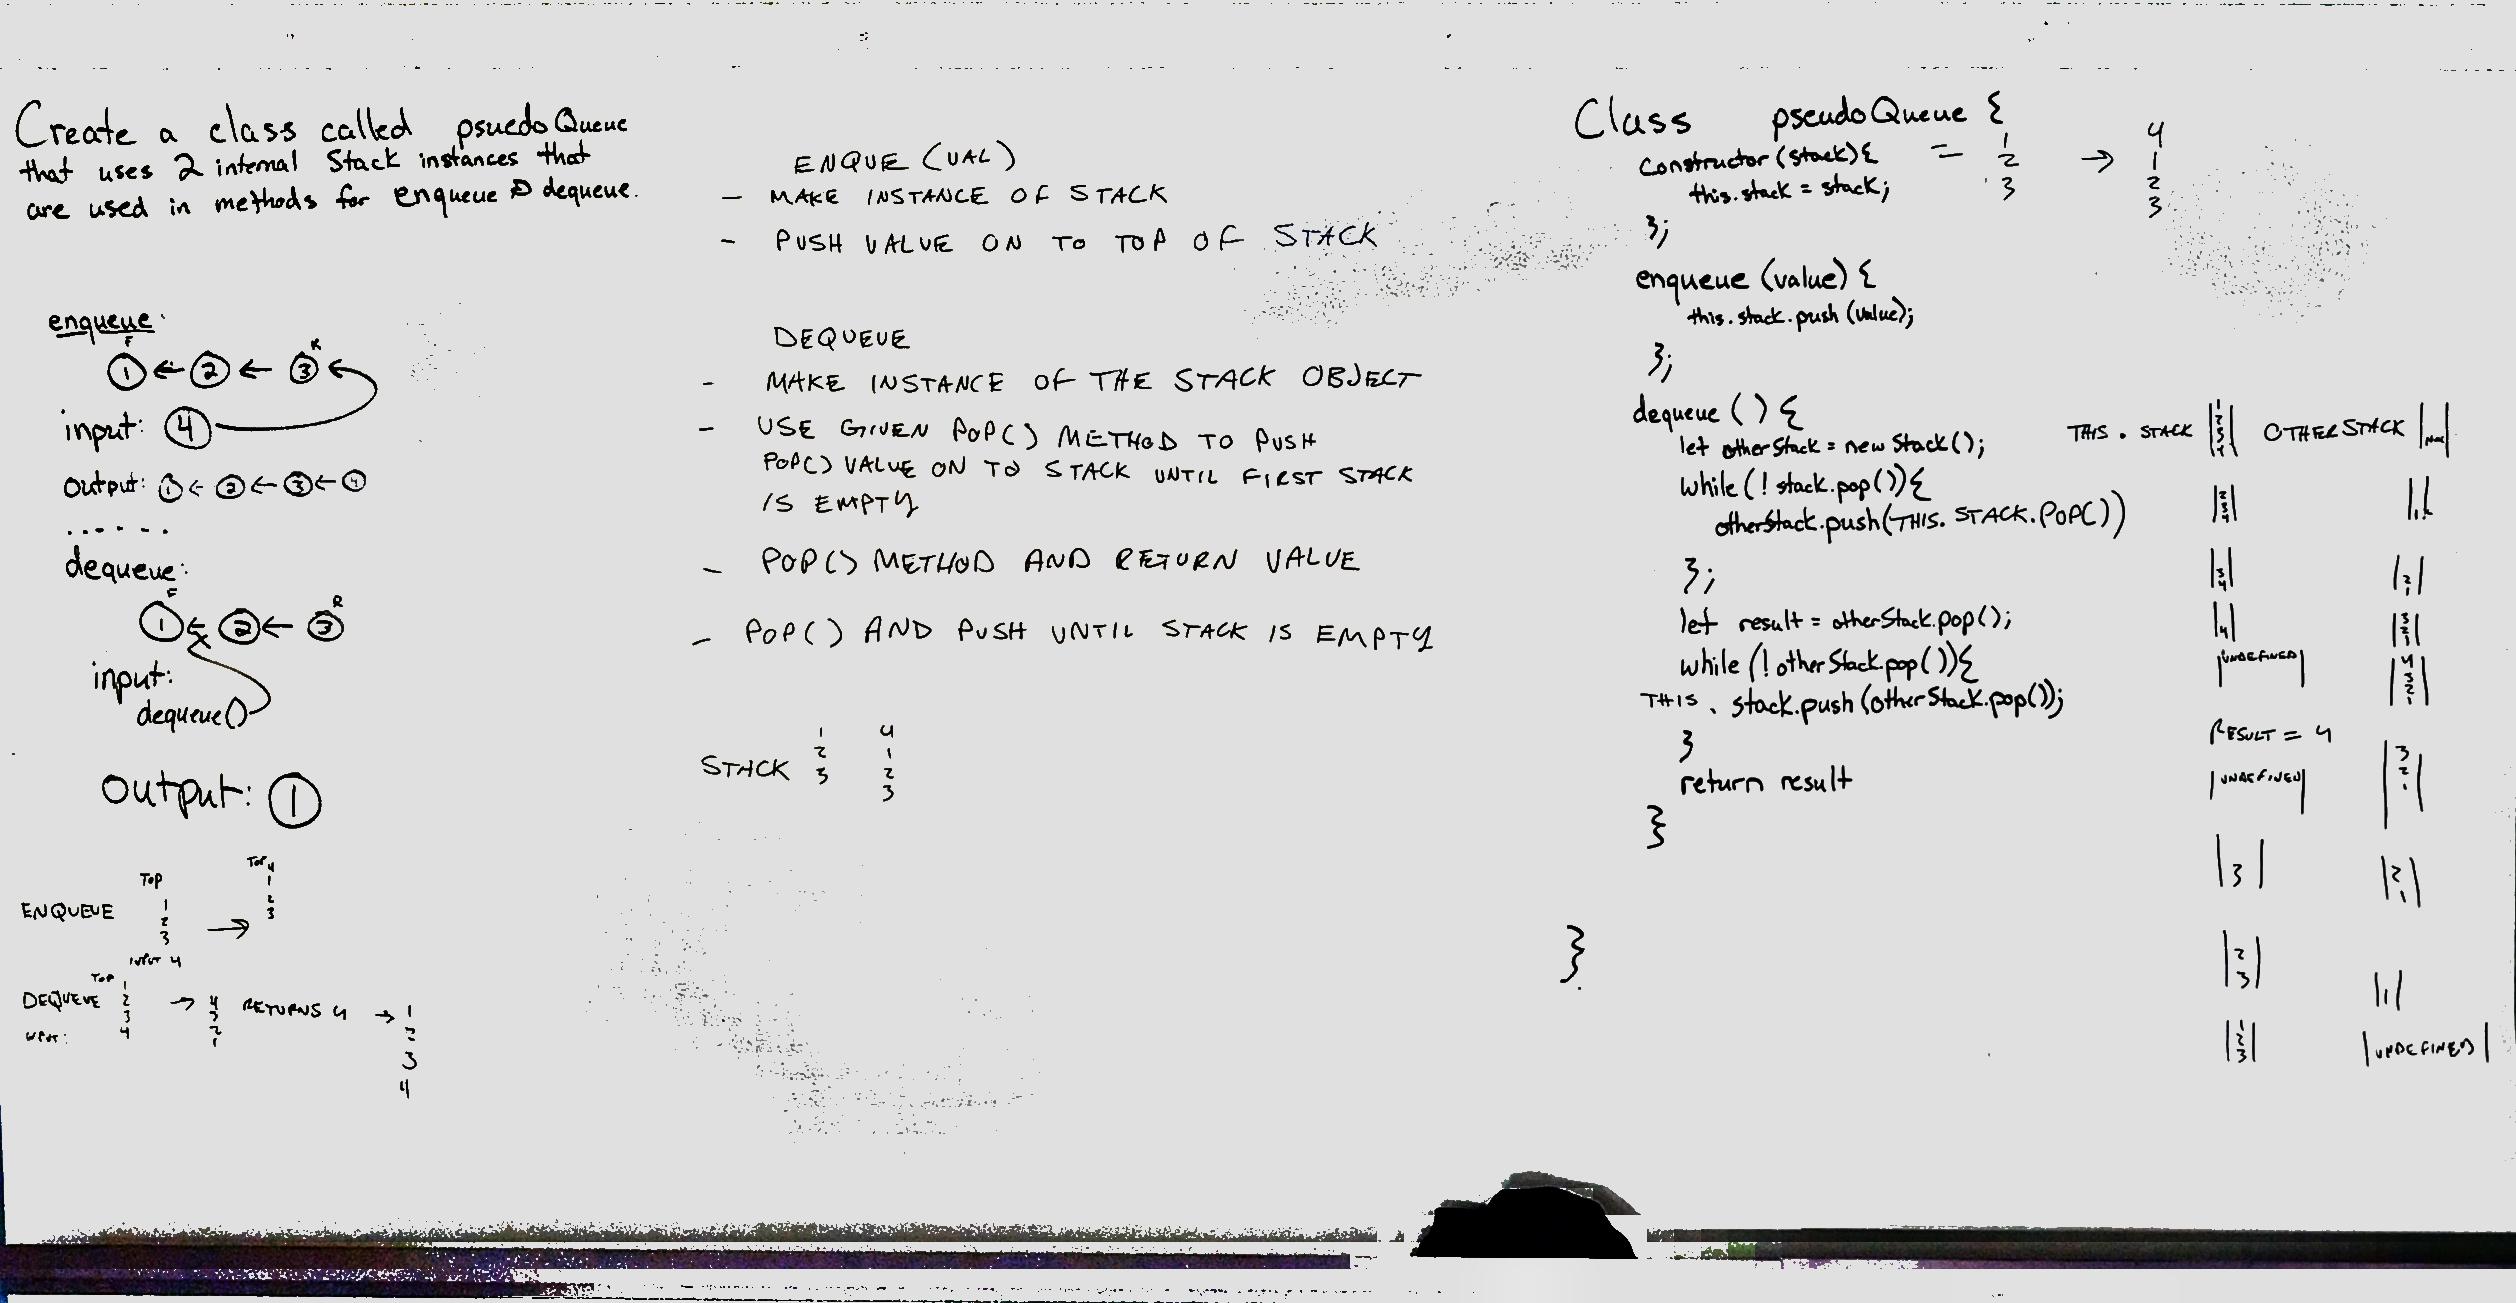 Create a class called psuedoQueue
that uses 2 internal Stack instances that
are used in methods for enqueue & dequeue.
enqueue:
F R
1 ← 2 ← 3
input: 4
output: 1 ← 2 ← 3 ← 4
......
dequeue:
F R
1 ← 2 ← 3
input:
dequeue()
output: 1
TOP
TOP 4
ENQUEUE
1
2
3
→
1
2
3
INPUT 4
TOP
DEQUEUE
1
2
3
4
→
4
3
2
1
RETURNS 4
→
1
2
3
4
ENQUE (VAL)
- MAKE INSTANCE OF STACK
- PUSH VALUE ON TO TOP OF STACK
DEQUEUE
- MAKE INSTANCE OF THE STACK OBJECT
- USE GIVEN POP() METHOD TO PUSH
POP() VALUE ON TO STACK UNTIL FIRST STACK
IS EMPTY
- POP() METHOD AND RETURN VALUE
- POP() AND PUSH UNTIL STACK IS EMPTY
STACK
1
2
3
4
1
2
3
Class pseudoQueue {
constructor(stack){
this.stack = stack;
};
=
1
2
3
→
4
1
2
3
enqueue (value) {
this.stack.push(value);
};
dequeue () {
let otherStack = new Stack();
while(! stack.pop()){
otherStack.push(THIS.STACK.POP())
};
let result = otherStack.pop();
while (! otherStack.pop()){
THIS. stack.push(otherStack.pop());
}
return result
}
}
THIS.STACK |1 2 3 4| OTHERSTACK
|2 3 4| |1|
|3 4| |2 1|
|4| |3 2 1|
|UNDEFINED| |4 3 2 1|
RESULT = 4
|UNDEFINED| |3 2 1|
|3| |2 1|
|2 3| |1|
|1 2 3| |UNDEFINED|